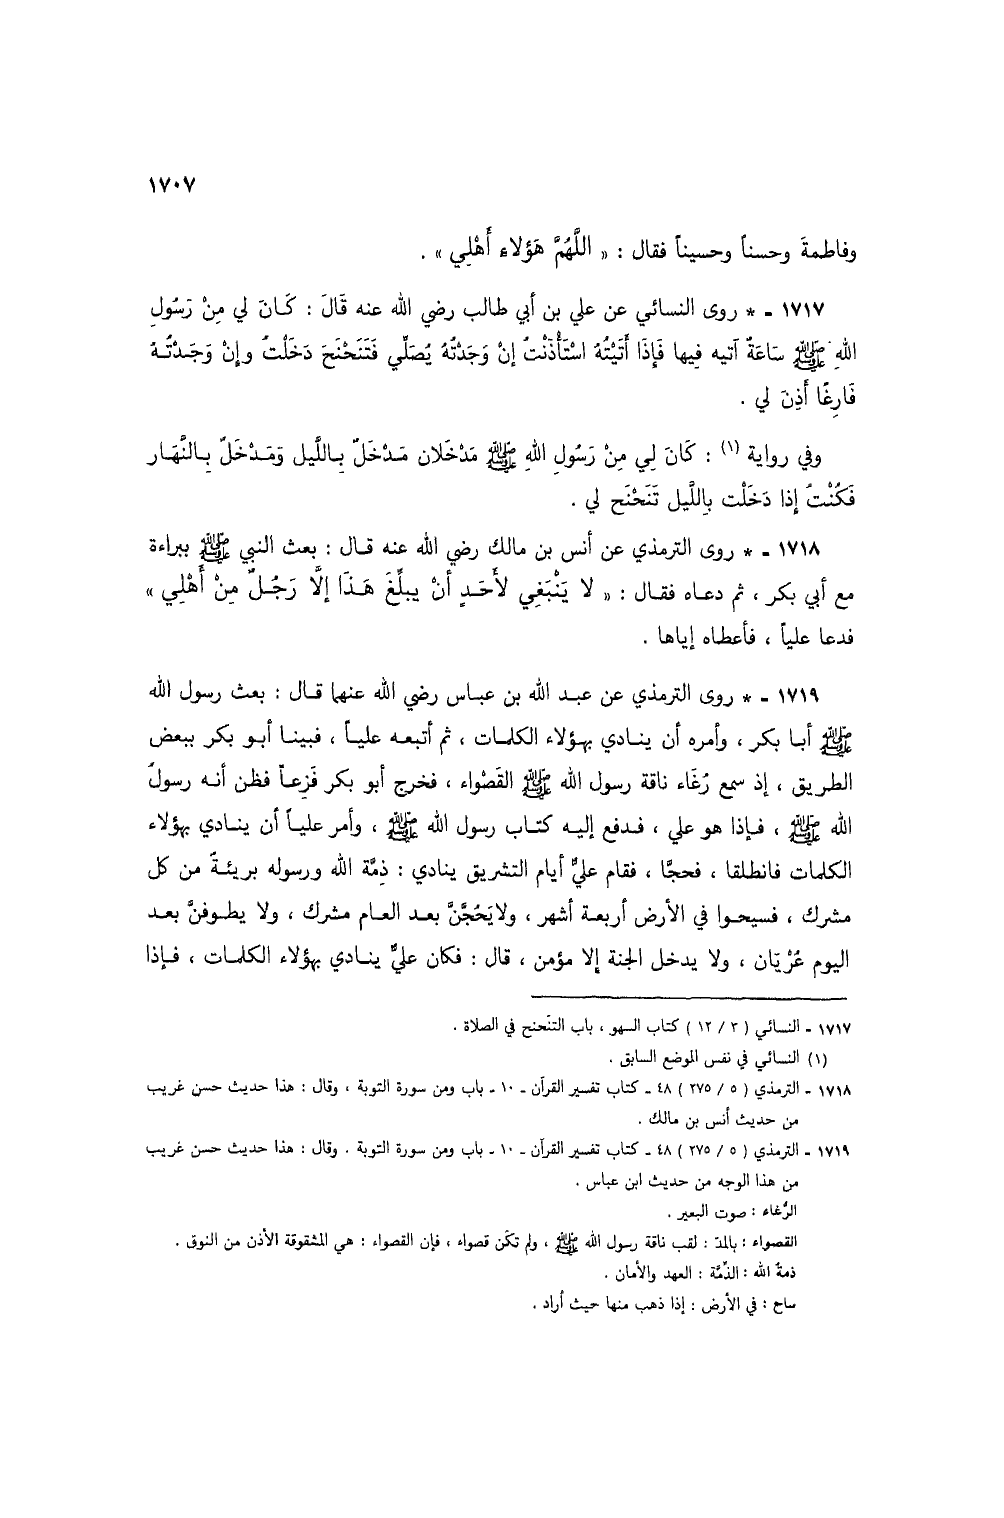 ١٧٠٧
وفاطمةَ وحسناً وحسيناً فقال : « اللَّهُمَّ هَؤلاء أَهْلِي » .
١٧١٧ - * روى النسائي عن علي بن أبي طالب رضي الله عنه قَالَ : كَـانَ لي مِنْ رَسُولِ
اللهِ ﷺ سَاعَةٌ آتيه فِيها فَإِذَا أَتَيْتُهُ اسْتَأْذَنْتُ إنْ وَجَدْتُهُ يُصَلِّي فَتَنَحْنَحَ دَخَلْتُ وإِنْ وَجَـدْتُـهُ
فَارِغًا أَذِنَ لي .
وفي رواية (١) : كَانَ لِي مِنْ رَسُولِ اللهِ ﷺ مَدْخَلان مَـدْخَلٌ بِـاللَّيل وَمَـدْخَلٌ بِـالنَّهَار
فَكُنْتُ إِذا دَخَلْت بِاللَّيل تَنَحْنَح لي .
١٧١٨ - * روى الترمذي عن أنس بن مالك رضي الله عنه قـال : بعث النبي ﷺ ببراءة
مع أبي بكر ، ثم دعـاه فقـال : « لا يَنْبَغِي لأَحَـدٍ أنْ يبلِّغَ هَـذَا إلَّا رَجُـلٌ مِنْ أَهْلِي »
فدعا علياً ، فأعطاه إياها .
١٧١٩ - * روى الترمذي عن عبـد الله بن عبـاس رضي الله عنهما قـال : بعث رسول الله
ﷺ أبـا بكر ، وأمره أن ينـادي بهـؤلاء الكلمـات ، ثم أتبعـه عليـاً ، فبينـا أبـو بكر ببعض
الطريق ، إذ سمع رُغَاء ناقة رسول الله ﷺ القَصْواء ، فخرج أبو بكر فَزِعـاً فظن أنـه رسولُ
الله ﷺ ، فـإذا هو علي ، فـدفع إليـه كتـاب رسول الله ﷺ ، وأمر عليـاً أن ينـادي بهؤلاء
الكلمات فانطلقا ، فحجَّا ، فقام عليٌّ أيام التشريق ينادي : ذِمَّة الله ورسوله بريئـةٌ من كل
مشرك ، فسيحـوا في الأرض أربعـة أشهر ، ولايَحُجَّنَّ بعـد العـام مشرك ، ولا يطـوفنَّ بعـد
اليوم عُرْيَان ، ولا يدخل الجنة إلا مؤمن ، قال : فكان عليٌّ ينـادي بهؤلاء الكلمـات ، فـإذا
١٧١٧ - النسائي ( ٣ / ١٢ ) كتاب السهو ، باب التنَحنح في الصلاة .
(١) النسائي في نفس الموضع السابق .
١٧١٨ - الترمذي ( ٥ / ٢٧٥ ) ٤٨ - كتاب تفسير القرآن - ١٠ - باب ومن سورة التوبة ، وقال : هذا حديث حسن غريب
من حديث أنس بن مالك .
١٧١٩ - الترمذي ( ٥ / ٢٧٥ ) ٤٨ - كتاب تفسير القرآن - ١٠ - باب ومن سورة التوبة . وقال : هذا حديث حسن غريب
من هذا الوجه من حديث ابن عباس .
الرُّغاء : صوت البعير .
القصواء : بالمدّ : لقب ناقة رسول الله ﷺ ، ولم تكن قصواء ، فإن القصواء : هي المشقوقة الأذن من النوق .
ذمةُ الله : الذِّمَّة : العهد والأمان .
ساح : في الأرض : إذا ذهب منها حيث أراد .